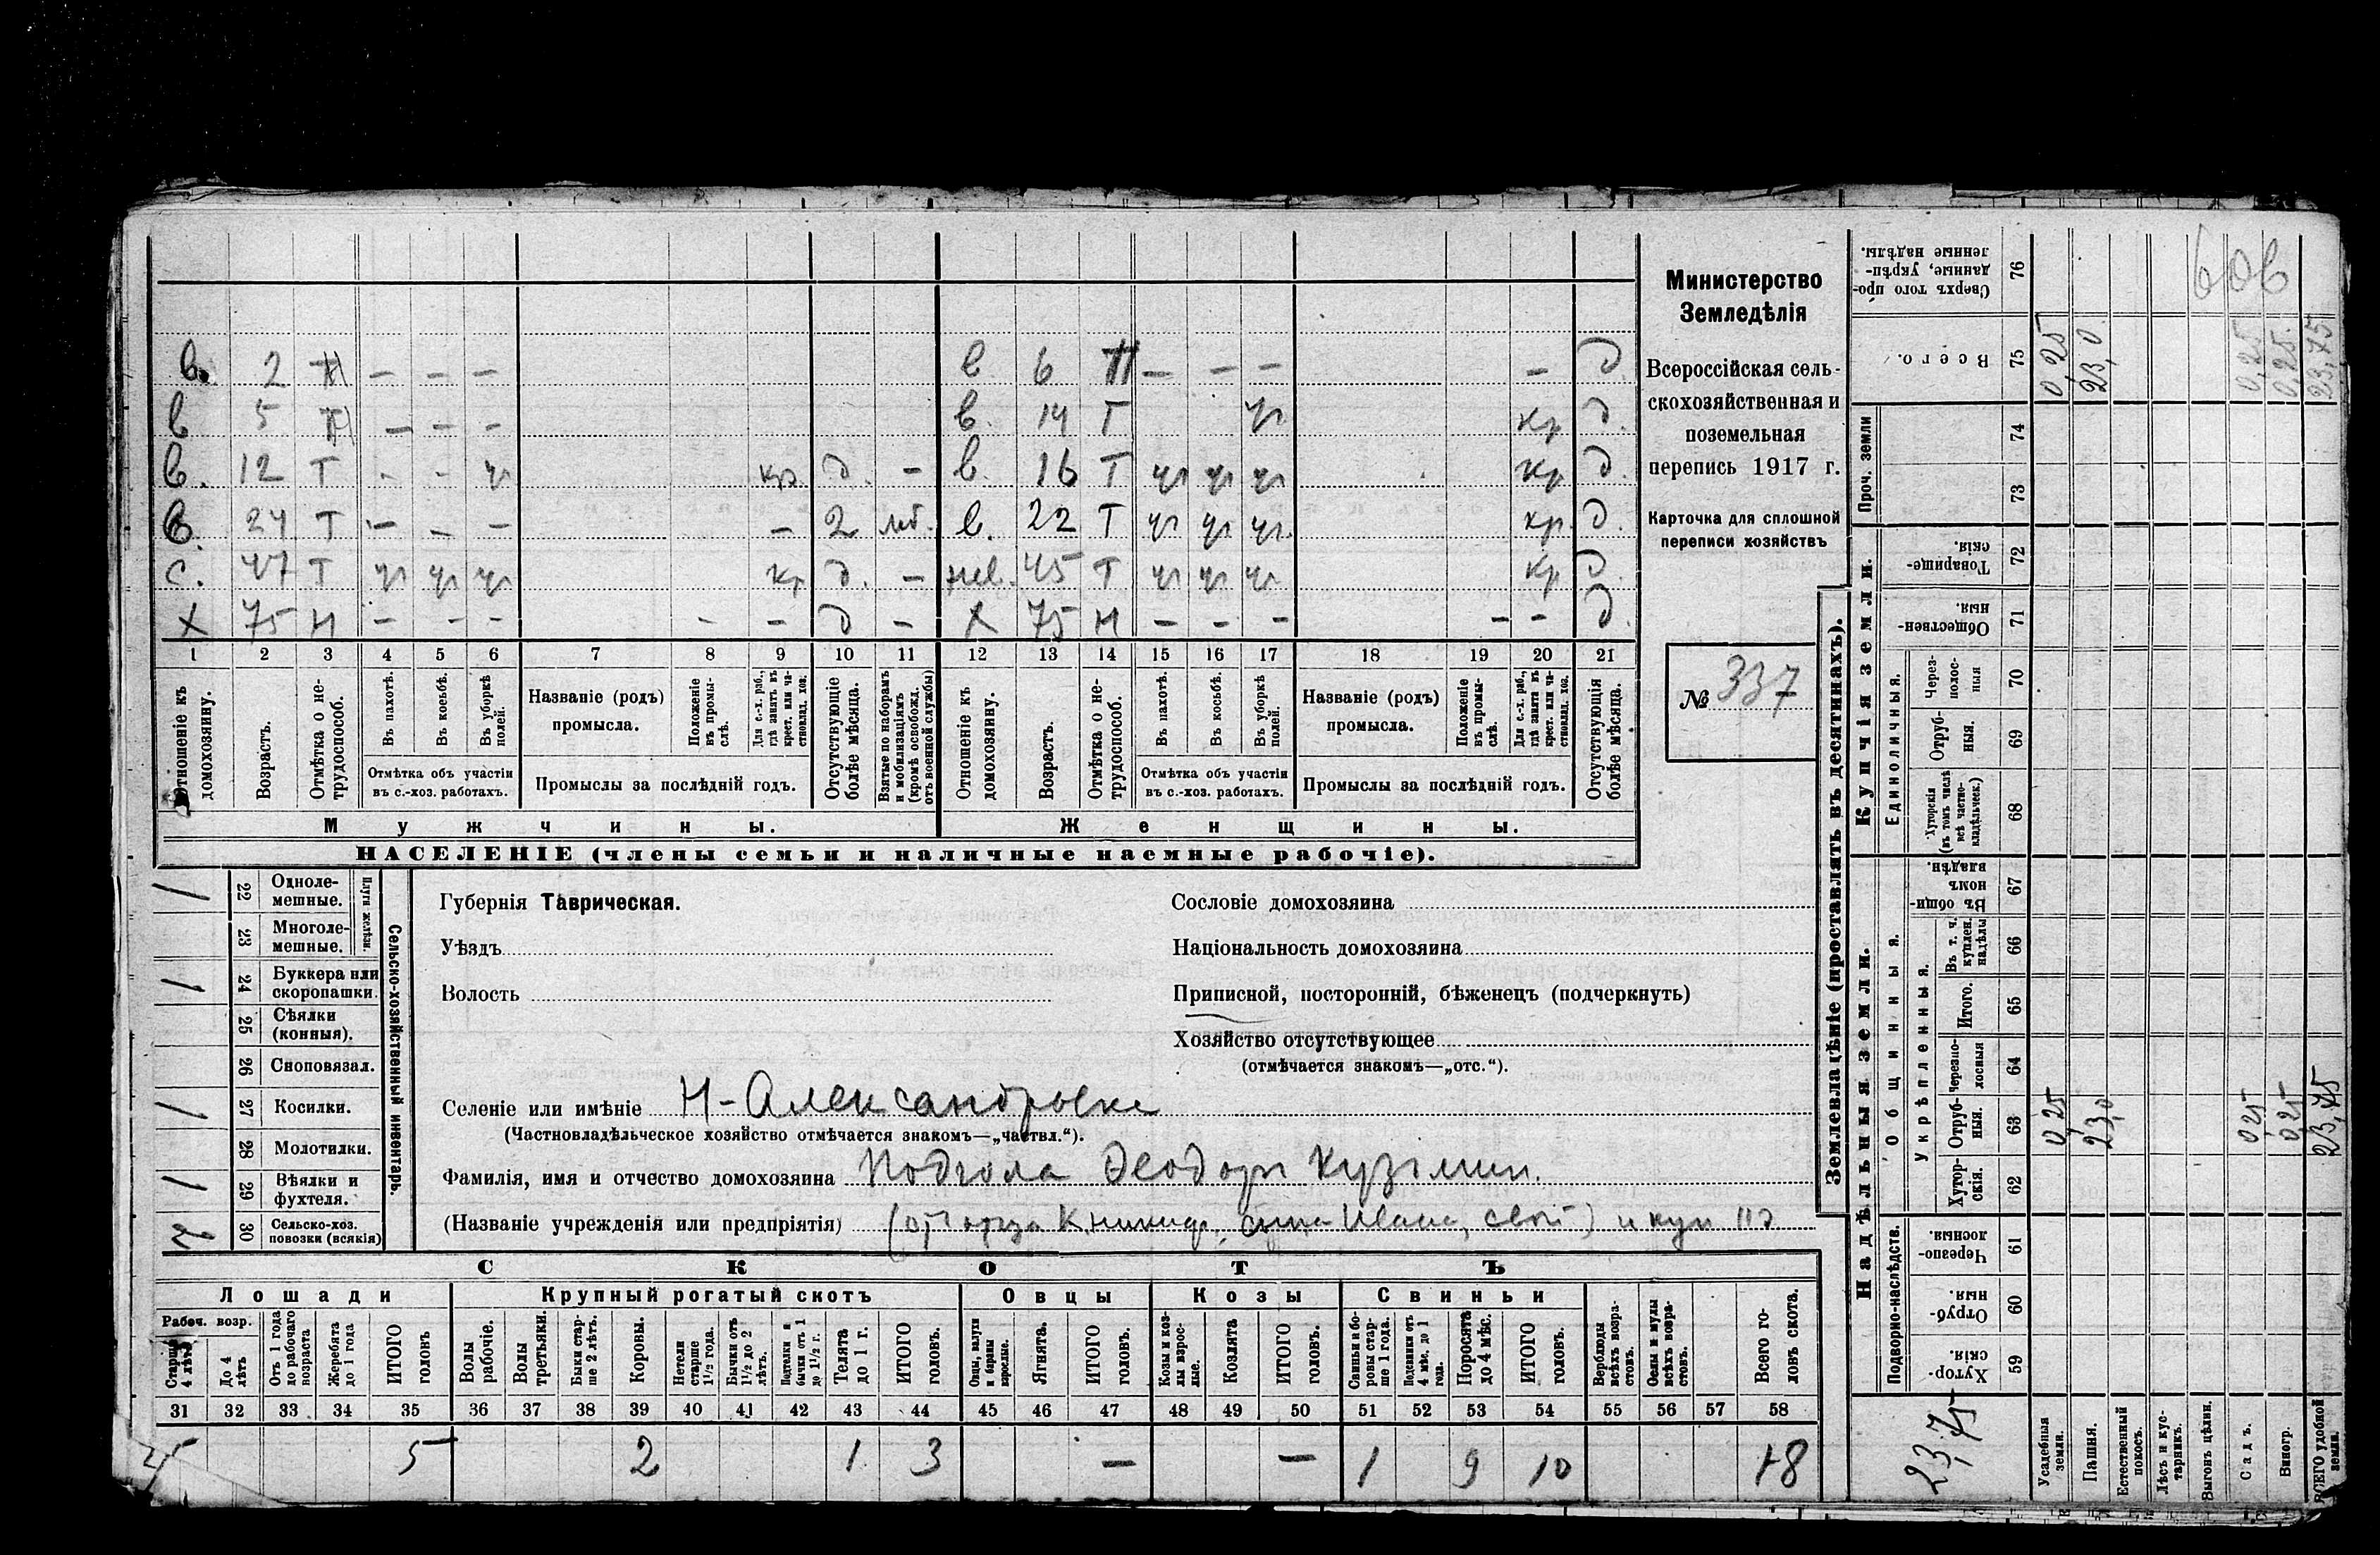 в. 2 Н — — — в 6 Н — — — — д
в 5 Н — — — в. 14 Т чг кр д.
в. 12 Т - - чг кр д. — в. 16 Т чг чг чг кр д.
в. 24 Т — — — — 2 мб. в. 22 Т чг чг чг кр. д.
с. 47 Т чг чг чг кр д. — 45 Т чг чг чг кр д.
Х 75 Н — - - - — д — Х 75 Н — — — — - д.
1 2 3 4 5 6 7 8 9 10 11 12 13 14 15 16 17 18 19 20 21
Отношеніе къ домохозяину.
Возрастъ.
Отмѣтка о нетрудоспособ.
Въ пахотѣ.
Въ косьбѣ.
Въ уборкѣ полей.
Отмѣтка объ участіи
въ с.-хоз. работахъ.
Названіе (родъ)
промысла.
Положеніе въ промыслѣ.
Для с.-х. раб., гдѣ занятъ въ крест. или частновлад. хоз.
Промыслы за послѣдній годъ.
Отсутствующіе болѣе мѣсяца.
Взятые по наборамъ и мобилизаціямъ (кромѣ освобожд. отъ военной службы)
Отношеніе къ домохозяину.
Возрастъ.
Отмѣтка о нетрудоспособ.
Въ пахотѣ.
Въ косьбѣ.
Въ уборкѣ полей.
Отмѣтка объ участіи
въ с.-хоз. работахъ.
Названіе (родъ)
промысла.
Положеніе въ промыслѣ.
Для с.-х. раб., гдѣ занятъ въ крест. или частновлад. хоз.
Промыслы за послѣдній годъ.
Отсутствующія болѣе мѣсяца.
Мужчины. Женщины.
НАСЕЛЕНІЕ (члены семьи и наличные наемные рабочіе).
Министерство
Земледѣлія
Всероссійская сель-
скохозяйственная и
поземельная
перепись 1917 г.
Карточка для сплошной
переписи хозяйствъ
№ 337
Сельско-хозяйственный инвентарь.
Плуги желѣзн.
/ 22 Одноле-
мешные.
23 Многоле-
мешные.
/ 24 Буккера или
скоропашки.
25 Сѣялки
(конныя).
26 Сноповязал.
/ 27 Косилки.
28 Молотилки.
/ 29 Вѣялки и
фухтеля.
30 Сельско-хоз.
повозки (всякія)
Губернія Таврическая.
Уѣздъ
Волость
Сословіе домохозяина
Національность домохозяина
Приписной, посторонній, бѣженецъ (подчеркнуть)
Хозяйство отсутствующее
(отмѣчается знакомъ—„отс.“).
Селеніе или имѣніе Н-Александровка
(Частновладѣльческое хозяйство отмѣчается знакомъ—„частвл.“).
Фамилія, имя и отчество домохозяина Подгола Феодоръ Кузьмин.
(Названіе учрежденія или предпріятія) Ивана, свой)
СКОТЪ
Лошади Крупный рогатый скотъ Овцы Козы Свиньи
Рабоч. возр.
Старше 4 лѣтъ
До 4 лѣтъ
Отъ 1 года до рабочаго возраста
Жеребята до 1 года
ИТОГО головъ
Волы рабочіе.
Волы третьяки.
Быки старше 2 лѣтъ.
Коровы.
Нетели старше 1½ года.
Бычки отъ 1½ до 2 лѣтъ.
Подтелки и бычки отъ 1 до 1½ г.
Телята до 1 г.
ИТОГО головъ.
Овцы, валухи и бараны взрослые.
Ягнята.
ИТОГО головъ.
Козы и козлы взрослые.
Козлята
ИТОГО головъ.
Свиньи и боровы старше 1 года.
Подсвинки отъ 4 мѣс. до 1 года.
Поросята до 4 мѣс.
ИТОГО головъ.
Верблюды всѣхъ возрастовъ.
Ослы и мулы всѣхъ возрастовъ.
Всего головъ скота.
31 32 33 34 35 36 37 38 39 40 41 42 43 44 45 46 47 48 49 50 51 52 53 54 55 56 57 58
5 5 2 1 3 — — 1 9 10 18
Землевладѣніе (проставлять въ десятинахъ).
Купчія земли.
Надѣльныя земли.
Проч. земли
Единоличныя.
Общинныя.
Укрѣпленныя.
Подворно-наслѣдств.
Сверхъ того проданные, укрѣпленные надѣлы. 76
Всего. 75 0,25 23,0 0,25 0,25 23,75
606
74
73
Товарищескія. 72
Общественныя. 71
Черезполосныя 70
Отрубныя. 69
Хуторскія (въ томъ числѣ всѣ частновладѣльческ.) 68
Въ общинномъ владѣн. 67
Въ т. ч. куплен. надѣлы 66
Итого. 65
Черезполосныя 64
Отрубныя. 63 0,25 23,0 0,25 0,25 23,75
Хуторскія. 62
Черезполосныя. 61
Отрубныя. 60
Хуторскія. 59
23,75
Усадебныя земли.
Пашня.
Естественный покосъ.
Лѣсъ и кустарникъ.
Выгонъ цѣлин.
Садъ.
Виногр.
ВСЕГО удобной земли.